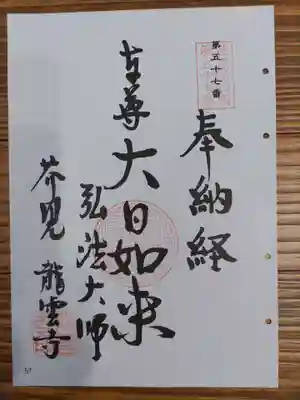 第五十七番
奉納経
本尊大日如来
弘法大師
芥見 龍雲寺
57